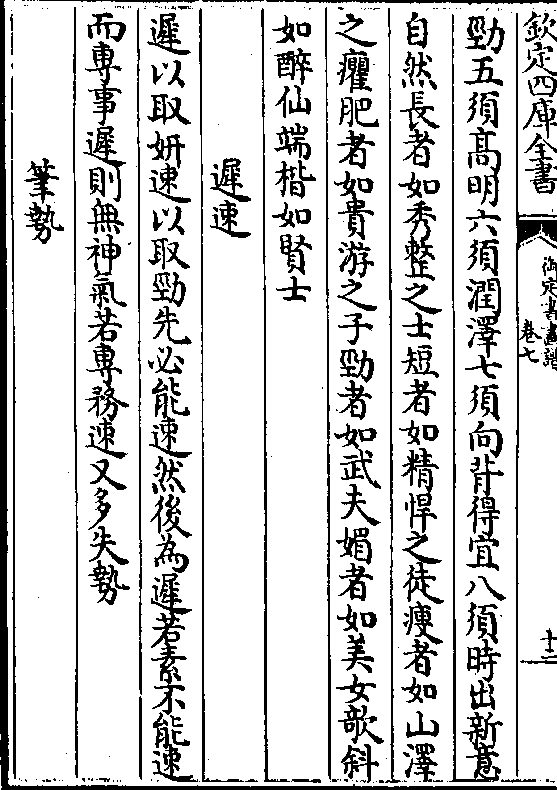 欽定四庫全書
御定書畫譜
卷七
十二
勁五須髙明六須潤澤七須向背得宜八須時出新意
自然長者如秀整之士短者如精悍之徒瘦者如山澤
之癯肥者如貴游之子勁者如武夫媚者如美女欹斜
如醉仙端楷如賢士
遲速
遲以取妍速以取勁先必能速然後為遲若素不能速
而專事遲則無神氣若專務速又多失勢
筆勢